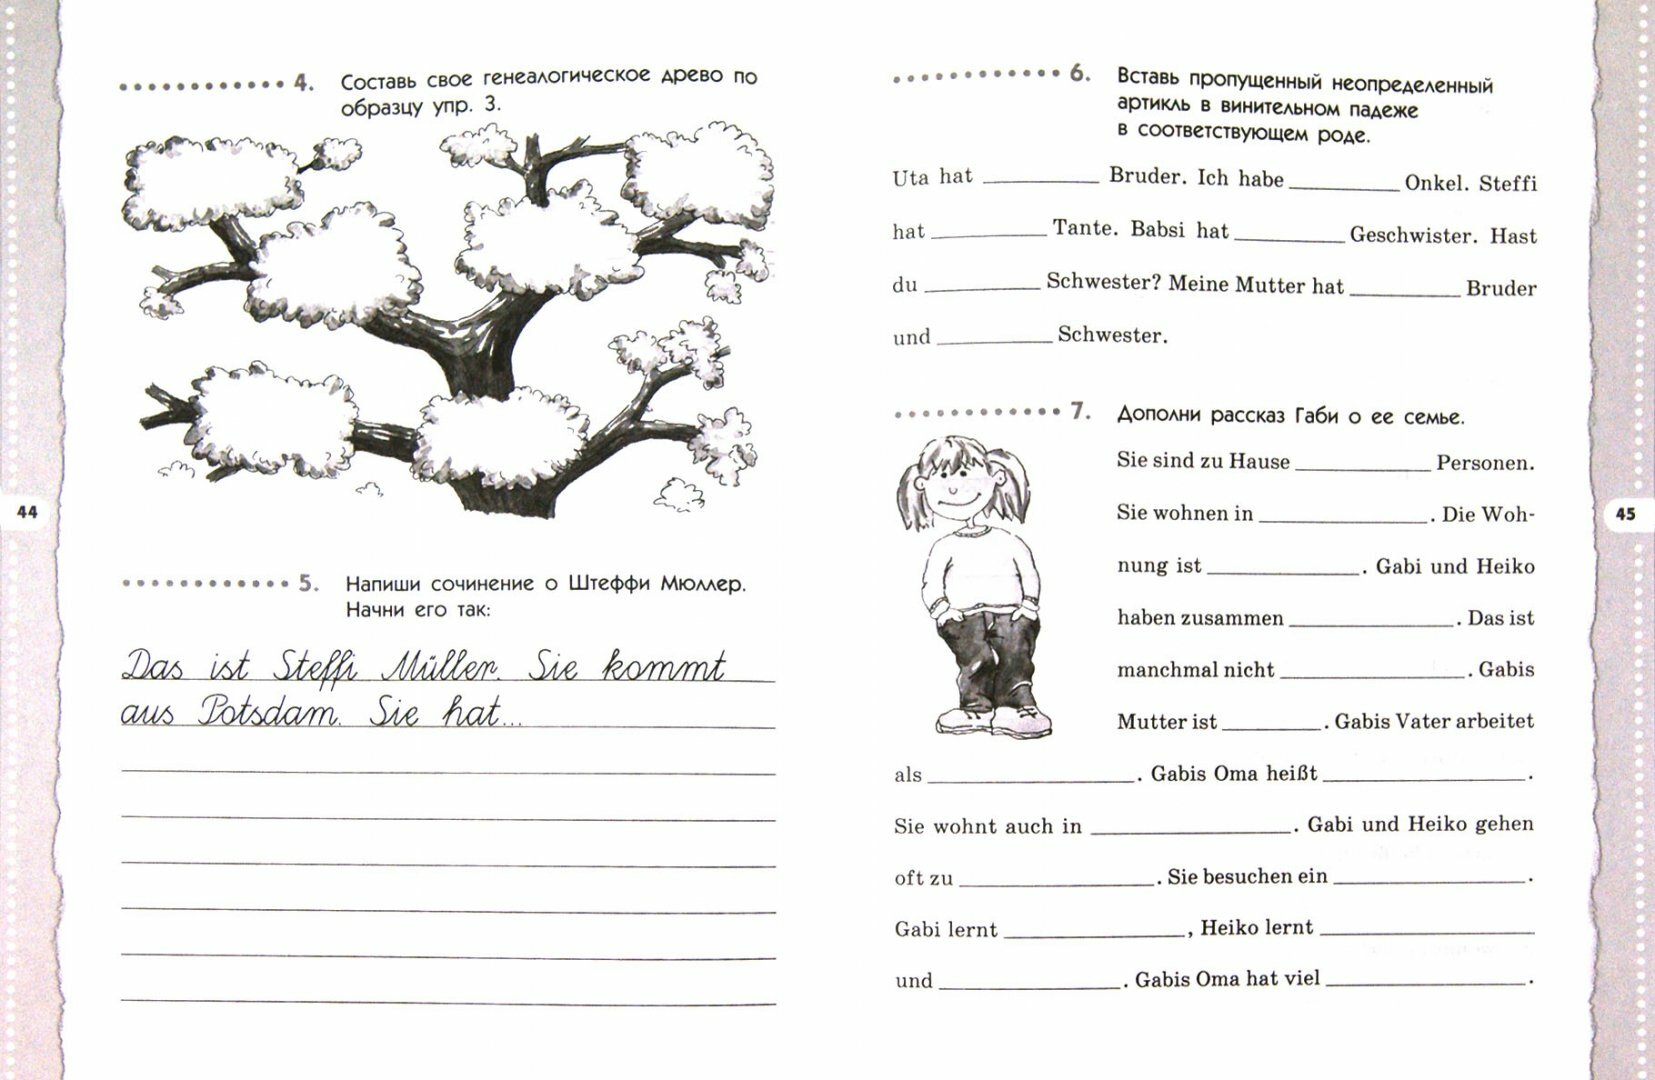 4. Составь свое генеалогическое древо по
образцу упр. 3.
44
5. Напиши сочинение о Штеффи Мюллер.
Начни его так:
Das ist Steffi Müller. Sie kommt
aus Potsdam. Sie hat...
6. Вставь пропущенный неопределенный
артикль в винительном падеже
в соответствующем роде.
Uta hat ____ Bruder. Ich habe ____ Onkel. Steffi
hat ____ Tante. Babsi hat ____ Geschwister. Hast
du ____ Schwester? Meine Mutter hat ____ Bruder
und ____ Schwester.
7. Дополни рассказ Габи о ее семье.
Sie sind zu Hause ____ Personen.
Sie wohnen in ____. Die Woh-
nung ist ____. Gabi und Heiko
haben zusammen ____. Das ist
manchmal nicht ____. Gabis
Mutter ist ____. Gabis Vater arbeitet
als ____. Gabis Oma heißt ____.
Sie wohnt auch in ____. Gabi und Heiko gehen
oft zu ____. Sie besuchen ein ____.
Gabi lernt ____, Heiko lernt ____
und ____. Gabis Oma hat viel ____.
45